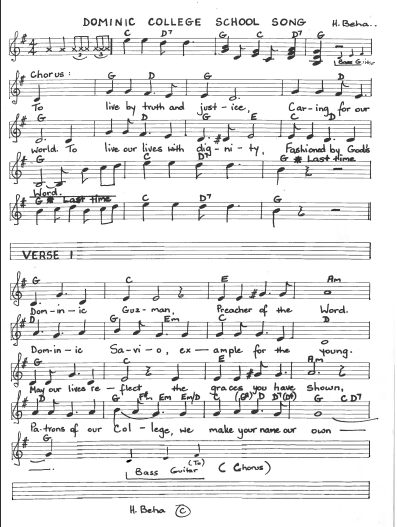 DOMINIC COLLEGE SCHOOL SONG H. Beha..
C D7 G C D7 G
Bass Guitar
Chorus: G D G C D
To live by truth and just-ice, Car-ing for our
G D G E C D
world. To live our lives with dig-ni-ty, Fashioned by God's
G C D7 G * Last time
Word.
G * Last time C D7 G
VERSE 1
G C E Am
Dom-in-ic Guz-man, Preacher of the Word.
D G Em C D
Dom-in-ic Sa-vi-o, ex-ample for the young.
G C E Am
May our lives re-flect the graces you have shown,
D G Em Em/D C D D7 G C D7
Pa-trons of our Col-lege, we make your name our own
G
(To)
Bass Guitar (Chorus)
H. Beha ©